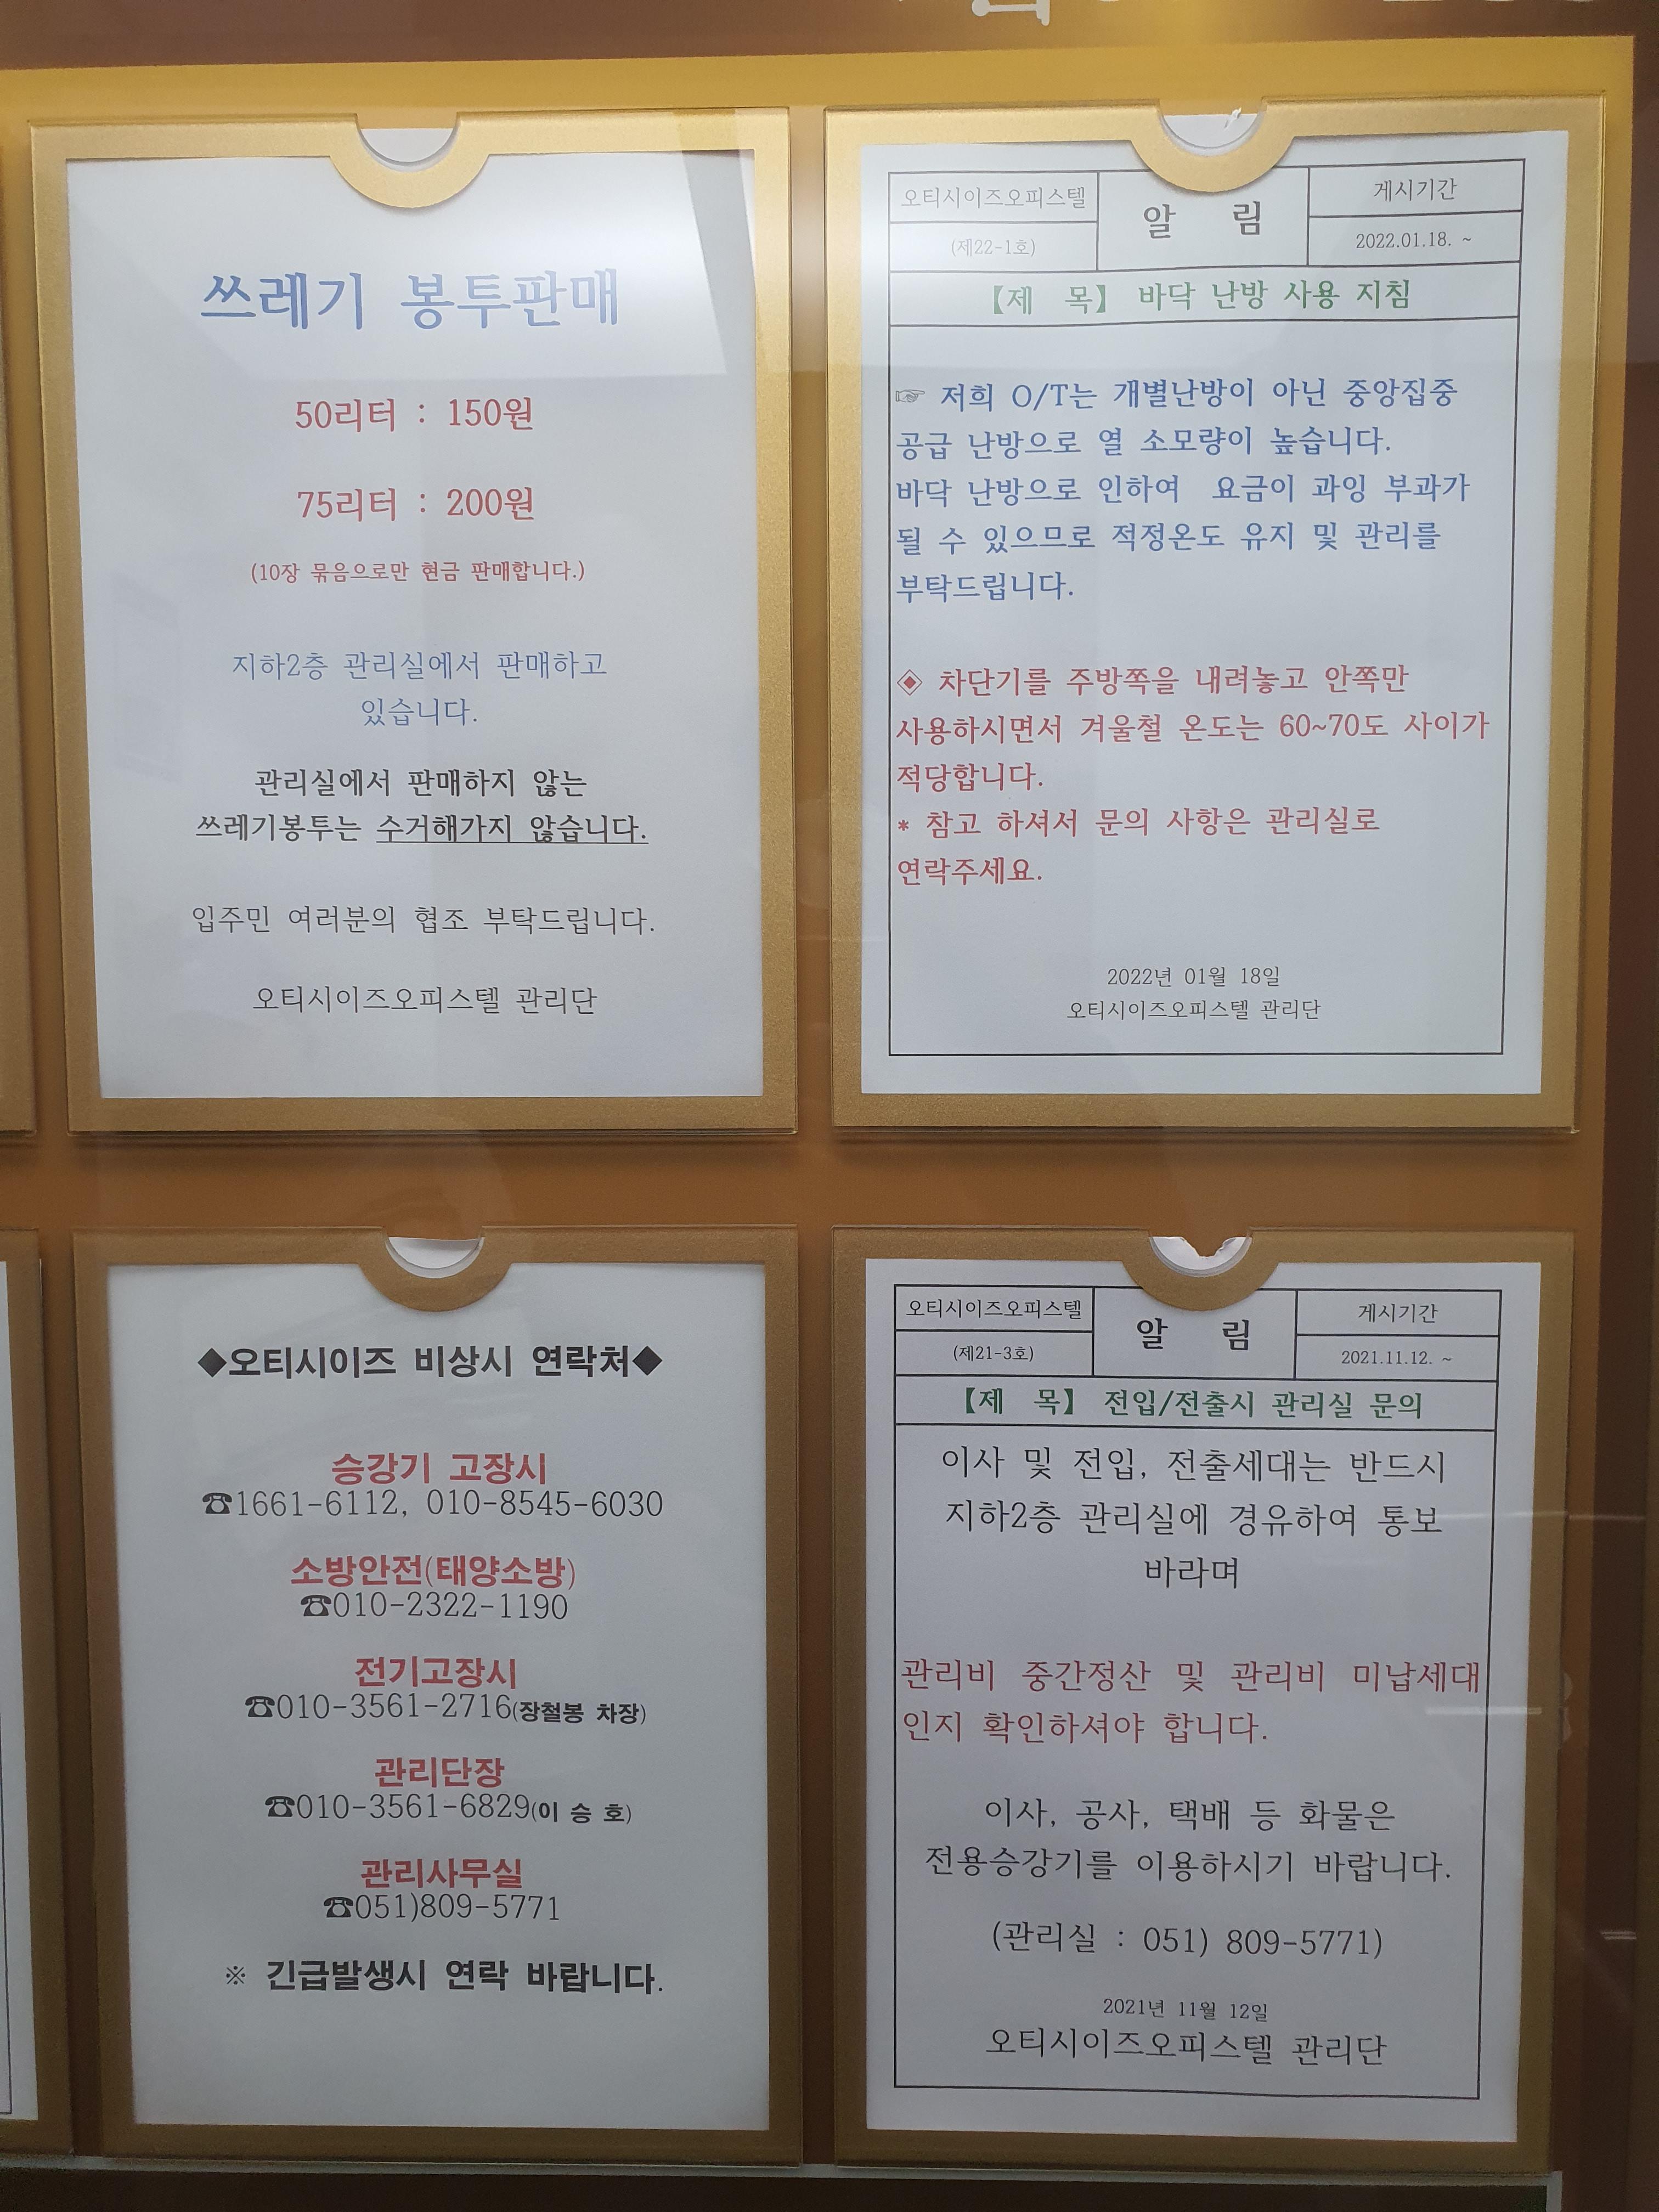 쓰레기 봉투판매
50리터 : 150원
75리터 : 200원
(10장 묶음으로만 현금 판매합니다.)
지하2층 관리실에서 판매하고
있습니다.
관리실에서 판매하지 않는
쓰레기봉투는 수거해가지 않습니다.
입주민 여러분의 협조 부탁드립니다.
오티시이즈오피스텔 관리단
오티시이즈오피스텔
(제22-1호)
알 림
게시기간
2022.01.18. ~
【제 목】 바닥 난방 사용 지침
☞ 저희 O/T는 개별난방이 아닌 중앙집중
공급 난방으로 열 소모량이 높습니다.
바닥 난방으로 인하여 요금이 과잉 부과가
될 수 있으므로 적정온도 유지 및 관리를
부탁드립니다.
◈ 차단기를 주방쪽을 내려놓고 안쪽만
사용하시면서 겨울철 온도는 60~70도 사이가
적당합니다.
* 참고 하셔서 문의 사항은 관리실로
연락주세요.
2022년 01월 18일
오티시이즈오피스텔 관리단
◆오티시이즈 비상시 연락처◆
승강기 고장시
☎1661-6112, 010-8545-6030
소방안전(태양소방)
☎010-2322-1190
전기고장시
☎010-3561-2716(장철봉 차장)
관리단장
☎010-3561-6829(이 승 호)
관리사무실
☎051)809-5771
※ 긴급발생시 연락 바랍니다.
오티시이즈오피스텔
(제21-3호)
알 림
게시기간
2021.11.12. ~
【제 목】 전입/전출시 관리실 문의
이사 및 전입, 전출세대는 반드시
지하2층 관리실에 경유하여 통보
바라며
관리비 중간정산 및 관리비 미납세대
인지 확인하셔야 합니다.
이사, 공사, 택배 등 화물은
전용승강기를 이용하시기 바랍니다.
(관리실 : 051) 809-5771)
2021년 11월 12일
오티시이즈오피스텔 관리단